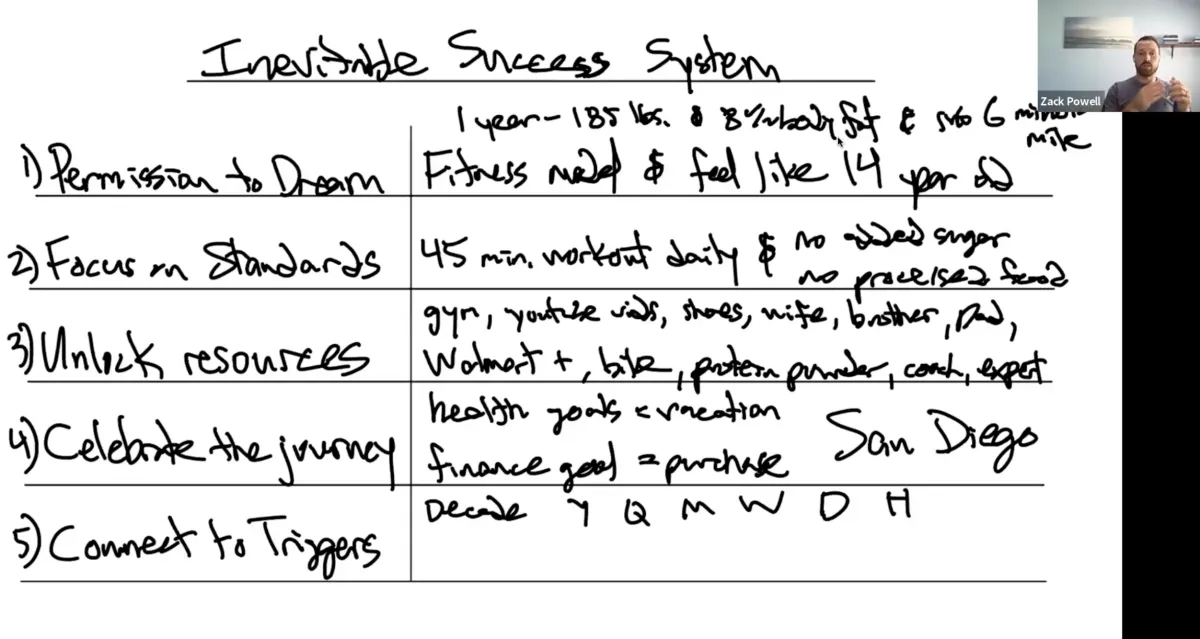 Inevitable Success System
Zack Powell
1 year - 185 lbs. & 8% body fat & sub 6 minute mile
1) Permission to Dream
Fitness model & feel like 14 year old
2) Focus on Standards
45 min. workout daily & no added sugar
no processed food
3) Unlock resources
gym, youtube vids, shoes, wife, brother, Dad,
Walmart +, bike, protein powder, coach, expert
4) Celebrate the journey
health goals = vacation
finance goal = purchase
San Diego
5) Connect to Triggers
Decade Y Q M W D H